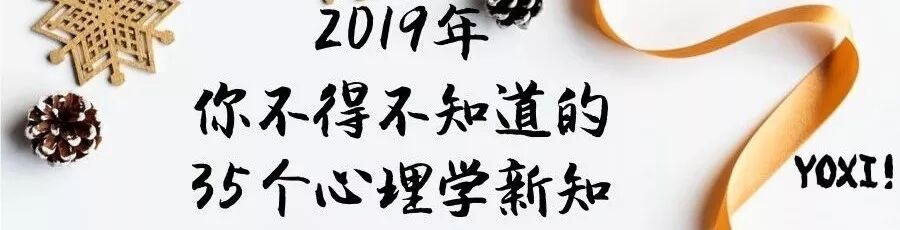 2019年
你不得不知道的
35个心理学新知
YOXI!